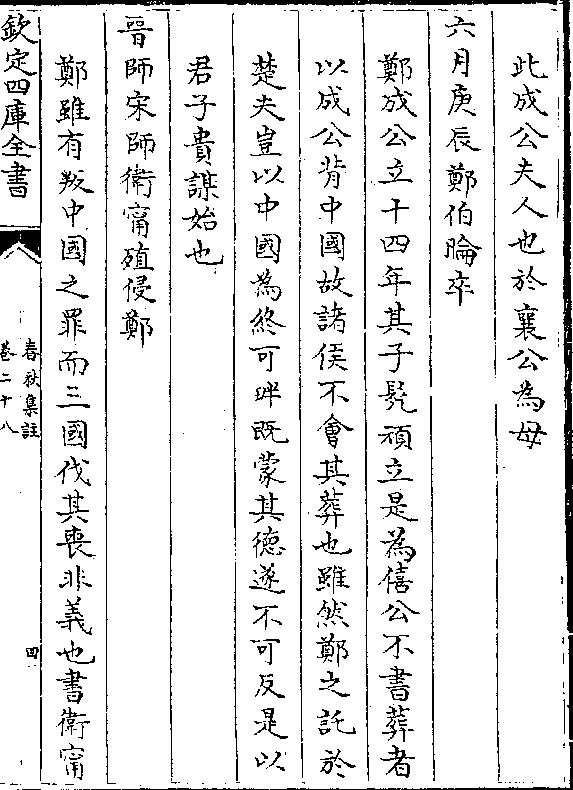 此成公夫人也於襄公為母
六月庚辰鄭伯睔卒
鄭成公立十四年其子髠頑立是為僖公不書葬者
以成公背中國故諸侯不會其葬也雖然鄭之託於
楚夫豈以中國為終可畔既蒙其徳遂不可反是以
君子貴謀始也
晉師宋師衛甯殖侵鄭
鄭雖有叛中國之罪而三國伐其喪非義也書衛甯
欽定四庫全書
春秋集註
卷二十八
四